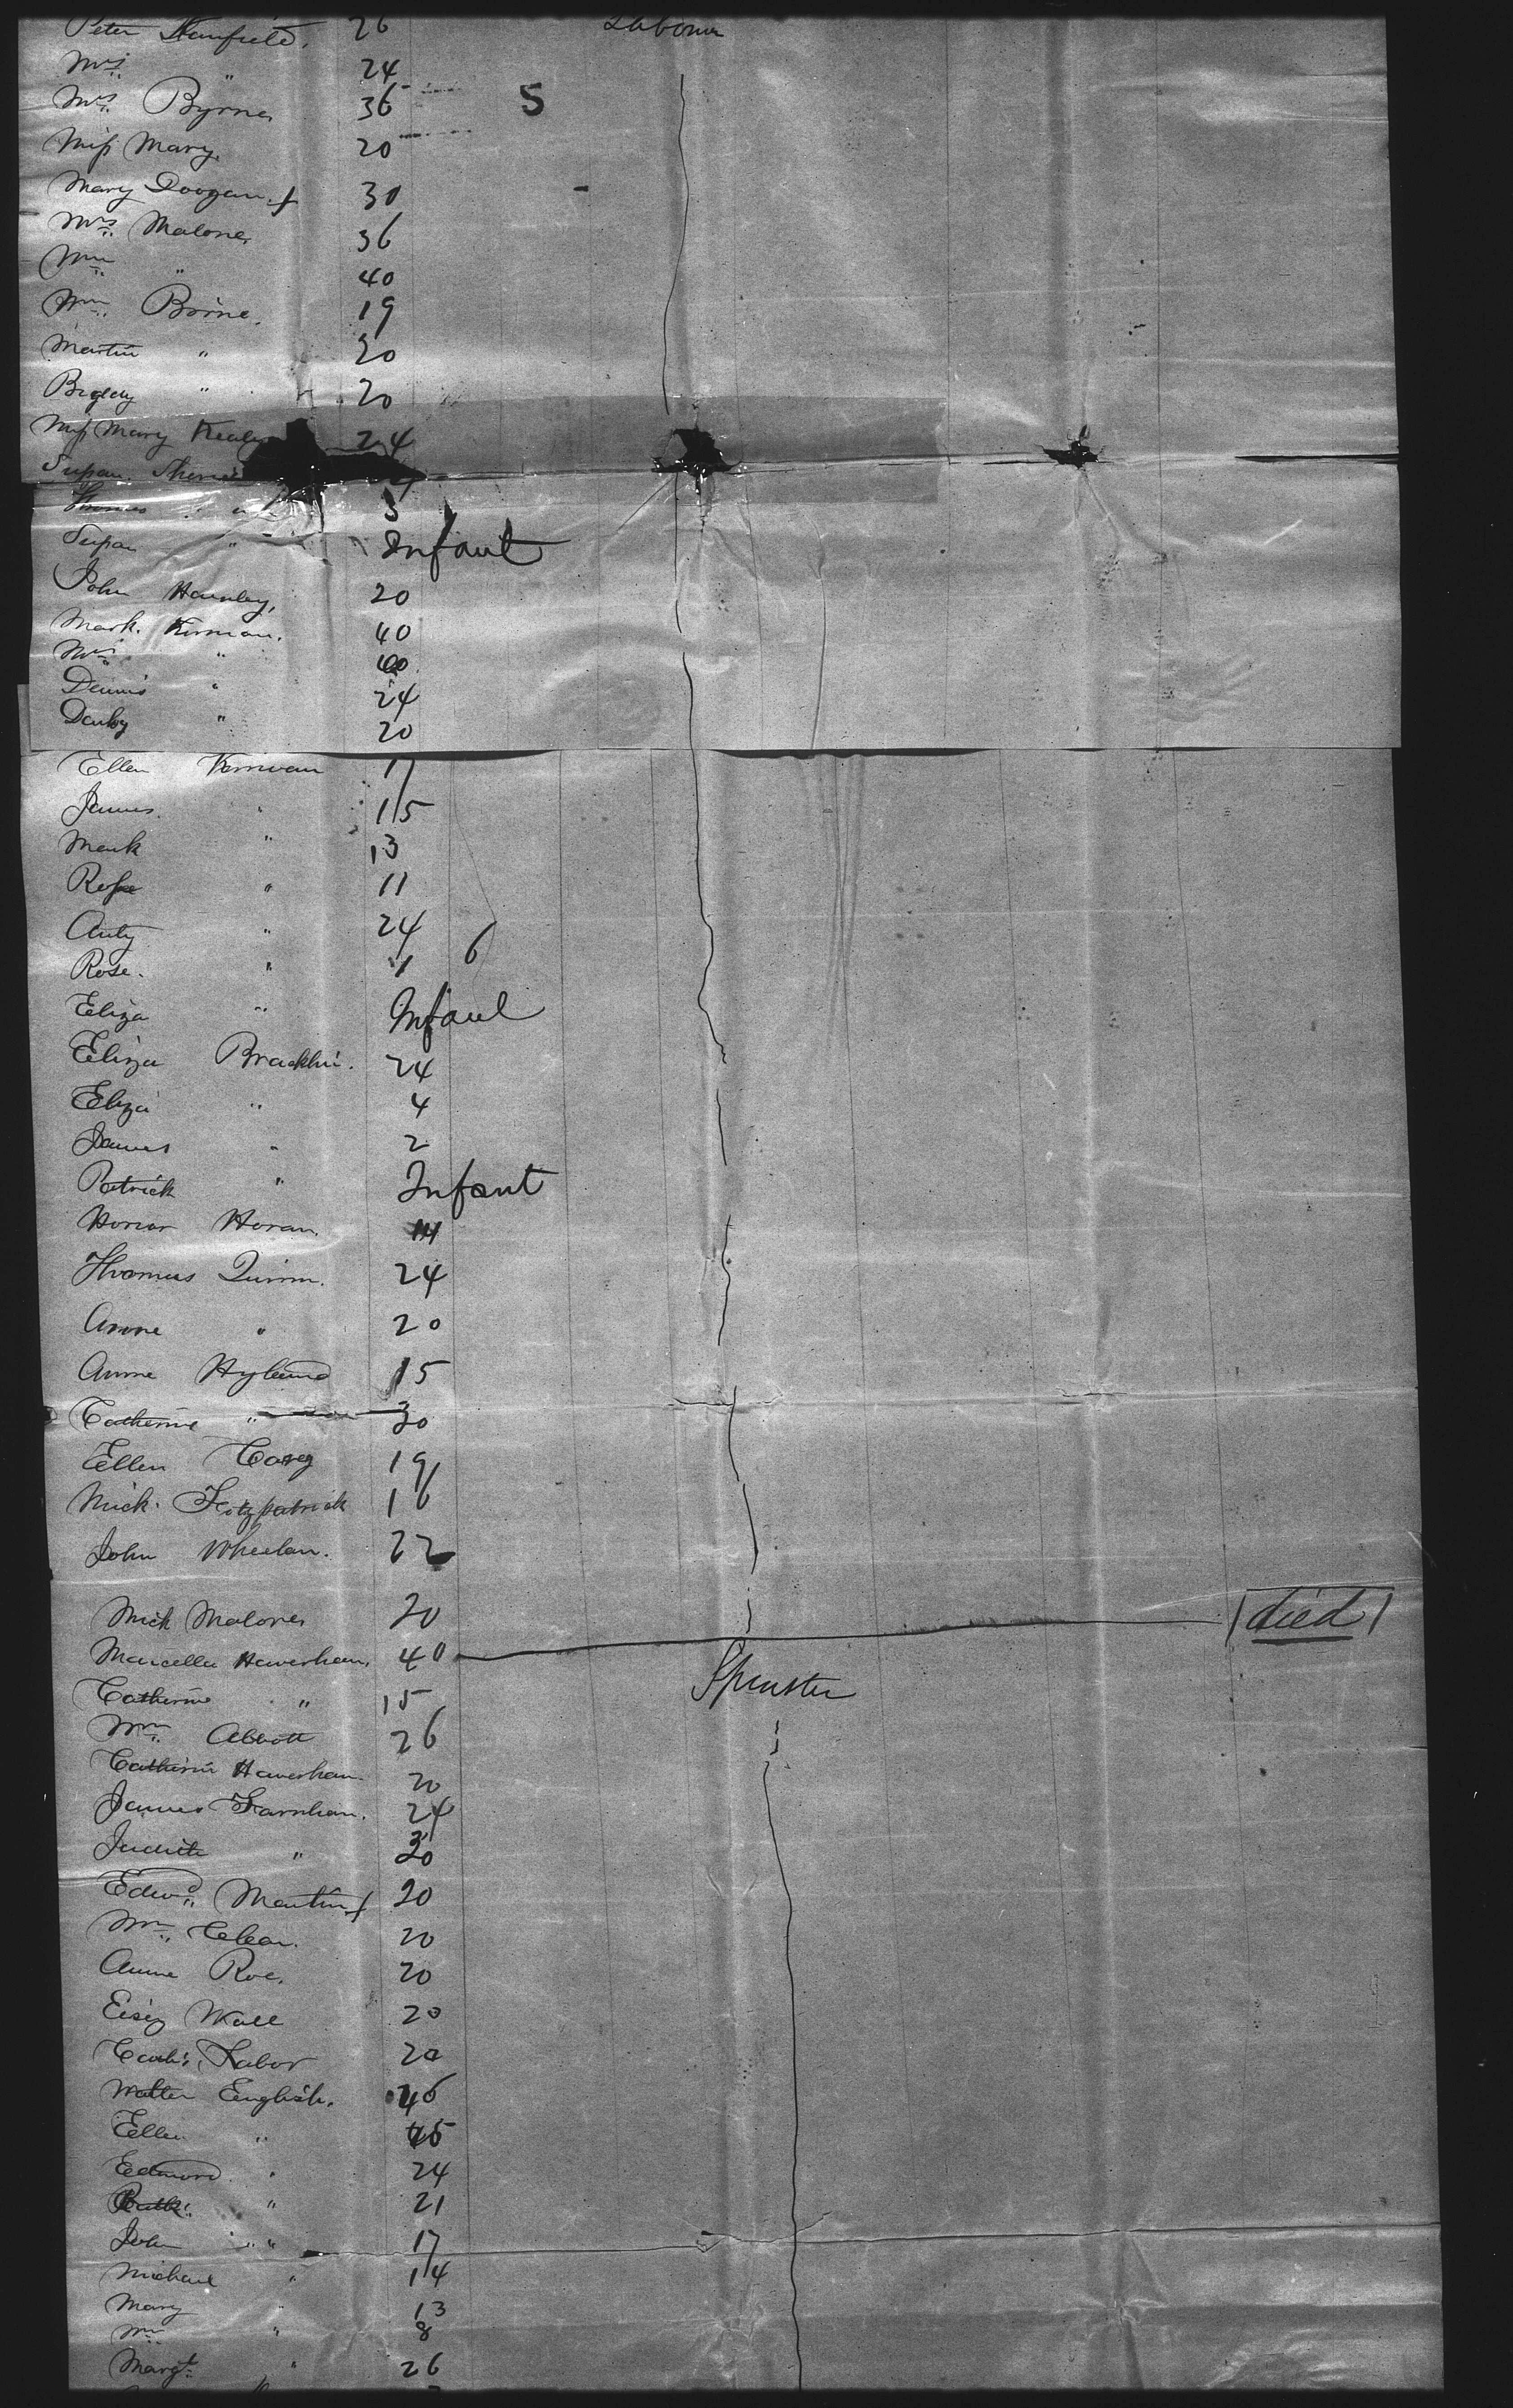 Peter Stanfield, 26 Labourer
Mrs " 24
Mrs Byrne, 36 5
Miss Mary, 20
Mary Doogan + 30
Mrs Malone, 36
Wm " 40
Wm Borne, 19
Martin " 20
Bigdey " 20
Miss Mary Kealy 24
Susan
Thomas " 3
Susan " Infant
John Hanley, 20
Mark. Kirwan. 40
Mrs " 40
Dennis " 24
Darby " 20
Ellen Kirwan 17
James " 15
Mark " 13
Rose " 11
Anty " 24 6
Rose. "
Eliza " Infant
Eliza Bracklin. 24
Eliza " 4
James " 2
Patrick " Infant
Honor Horan. 14
Thomas Quinn. 24
Anne " 20
Anne Hyland 15
Catherine " 30
Ellen Casey 19
Mick. Fitzpatrick 16
John Wheelan. 22
Mick Malone, 20
Marcella Haversham, 40 died
Catherine " 15 Spinster
Wm Abbott 26
Catherine Haversham 20
James Farnhan. 24
Judith " 30
Edwd Martin + 20
Wm Clear. 20
Anne Roe, 20
Wall 20
Cath: Labor 20
Walter English. 46
Ellen " 45
Edmond " 24
" 21
John " 17
Michael " 14
Mary " 13
Wm " 8
Margt " 26